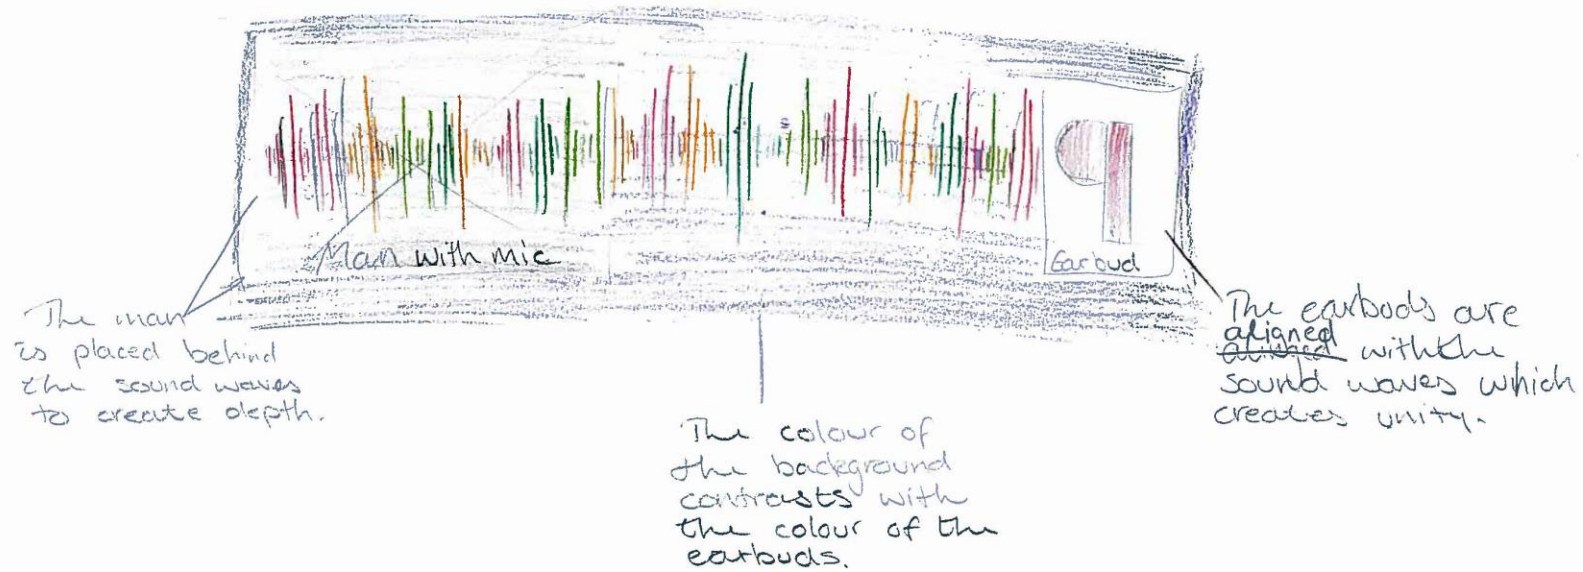 Man with mic
Earbud
The man
is placed behind
the sound waves
to create depth.
The colour of
the background
contrasts with
the colour of the
earbuds.
The earbuds are
aligned
with the
sound waves which
creates unity.